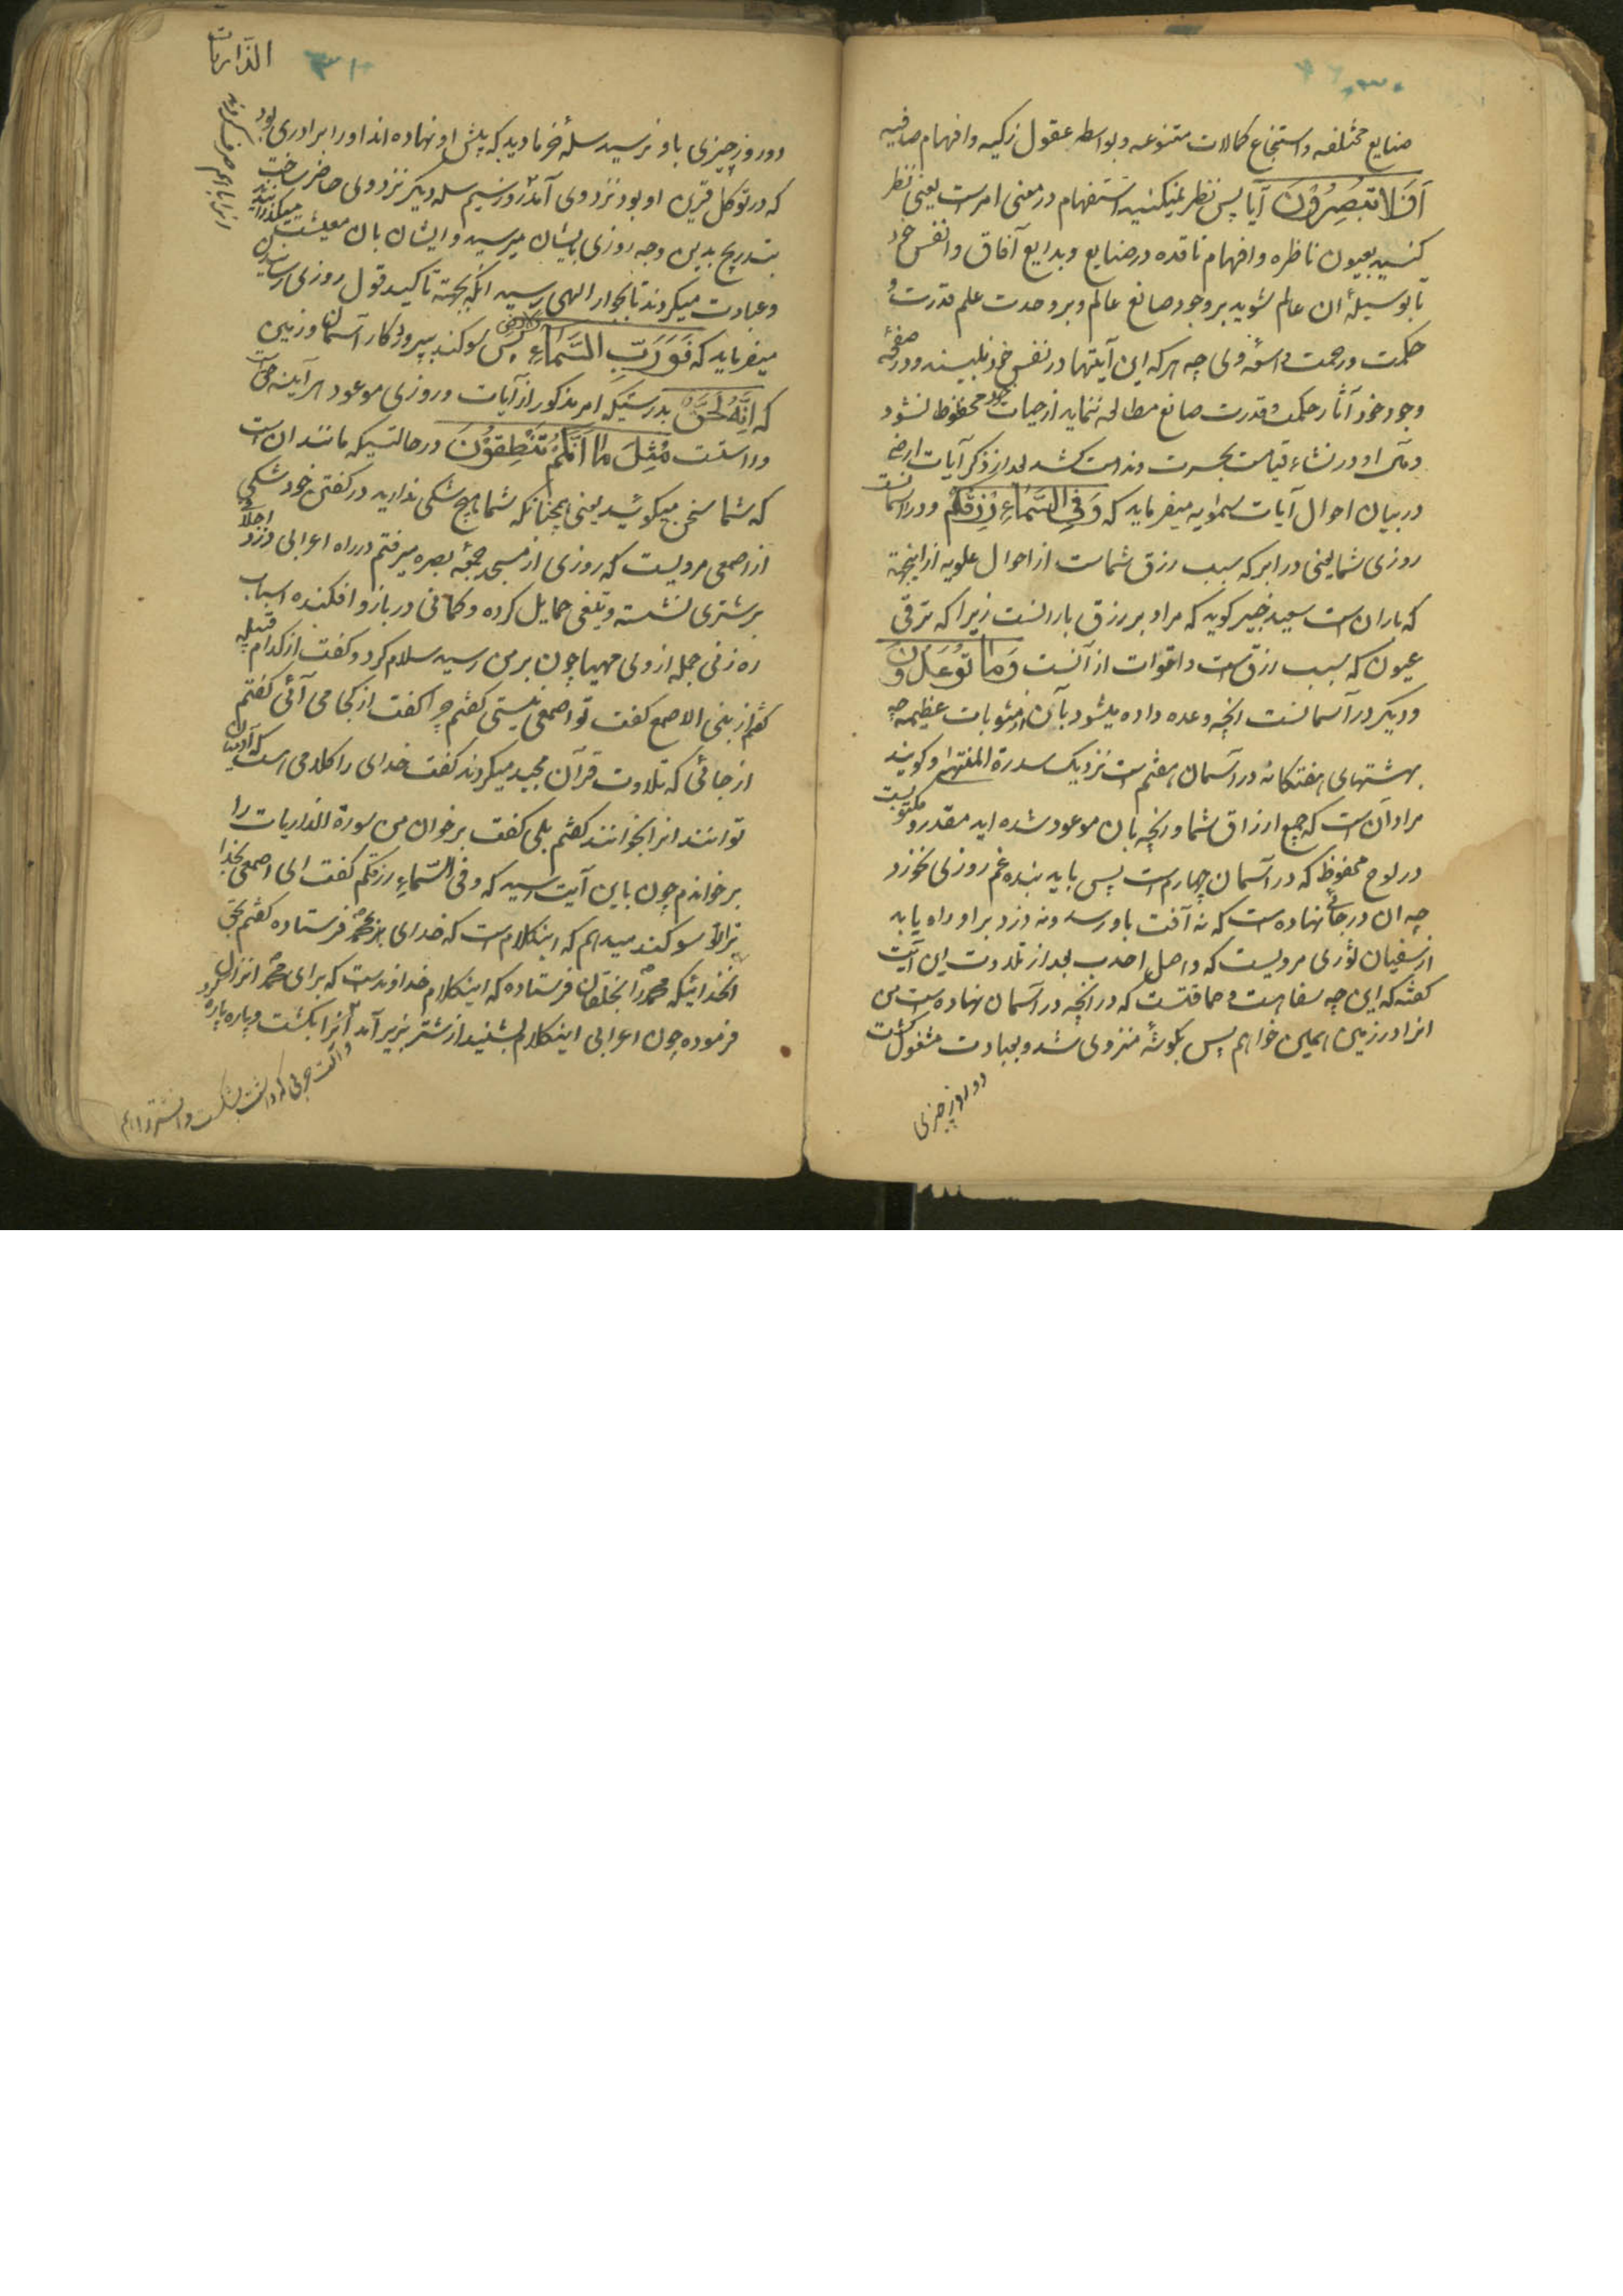 صنایع مختلفه و استجماع کمالات متنوعه و بواسطه عقول زکیه و افهام صافیه
اَفَلا تُبْصِرُوْنَ آیا پس نظر نمیکنید استفهام در معنی امر است یعنی نظر
کنید بعیون ناظره و افهام ناقده در صنایع و بدایع آفاق و انفس خود
تا بوسیلهٔ ان عالم شوید بر وجود صانع عالم و بر وحدت علم قدرت و
حکمت و رحمت واسعهٔ وی چه هر که این آیتها در نفس خود نبیند و در صفحهٔ
وجود خود آثار حکمت و قدرت صانع مطالعه ننماید از حیات خود محظوظ نشود
و مآل او در نشاء قیامت بحسرت و ندامت کشد بعد از ذکر آیات ارضی
در بیان احوال آیات سمویه میفرماید که وَفِی السَّمَاءِ رِزْقُکُمْ و در اسمانست
روزی شما یعنی در ابر که سبب رزق شماست از احوال علویه از اینجهة
که باران است سعید جبیر کوید که مراد بر رزق بارانست زیرا که ترقی
عیون که سبب رزقست و اقوات از آنست وَمَا تُوْعَدُوْنَ
و دیکر در آسمانست انچه وعده داده میشود بآن از مثوبات عظیمه چه
بهشتهای هفتکانه در آسمان هفتم است نزدیک سدرة المنتهی و کویند
مراد آن است که جمیع ارزاق شما و انچه بان موعود شده اید مقدر و مکتوبست
در لوح محفوظ که در آسمان چهارم است پس باید بنده غم روزی نخورد
چه ان در جائی نهاده ست که نه آفت باو رسد و نه دزد بر او راه یابد
از سفیان ثوری مرویست که واصل احدب بعد از تلاوت این آیت
کفته که این چه سفاهت و حماقتست که در انچه در آسمان نهاده ست من
انرا در زمین همین خواهم پس بکوشهٔ منزوی شد و بعبادت مشغول کشت
دو روز چیزی
الذاریات
۳۱
دو روز چیزی باو نرسید سلهٔ خرما دید که پیش او نهاده اند او را برادری بود
که در توکل قرین او بود نزد وی آمد روز سیم سله دیکر نزد وی حاضر ساخت
بتدریج بدین وجه روزی بایشان میرسید و ایشان بان معیشت میکذرانیدند
و عبادت میکردند تا بجوار الهی رسیدند انکه بجهته تاکید قول روزی رسانیدن
میفرماید که فَوَرَبِّ السَّمَاءِ وَالاَرْضِ پس سوکند بپروردکار آسمان و زمین
که اِنَّهُ لَحَقٌّ بدرستیکه امر مذکور از آیات و روزی موعود هر آینه حق است
و راستست مِثْلَ مَا اَنَّکُمْ تَنْطِقُوْنَ در حالتیکه مانند ان است
که شما سخن میکوئید یعنی همچنانکه شما هیچ شکی ندارید در کفتن خود شکی
از اصمعی مرویست که روزی از مسجد جمعهٔ بصره میرفتم در راه اعرابی دزد
بر شتری نشسته و تیغی حمایل کرده و کمانی در بازو افکنده اسباب
ره زنی جمله از وی مهیا چون بر من رسید سلام کرد و کفت از کدام قبیلهٔ
کفتم از بنی الاصمع کفت تو اصمعی نیستی کفتم چرا کفت از کجا می آئی کفتم
از جائی که تلاوت قرآن مجید میکردند کفت خدای را کلامی است که آدمیان
توانند انرا بخوانند کفتم بلی کفت بر خوان من سورة الذاریات را
بر خواندم چون باین آیت رسید که وفی السّماءِ رزقکم کفت ای اصمعی بخدا
ترا سوکند میدهم که اینکلام ست که خدای بر محمد فرستاده کفتم بحق
انخدائیکه محمد را بخلقان فرستاده که اینکلام خداوندست که برای محمد انزال
فرموده چون اعرابی اینکلام بشنید از شتر بزیر آمد انرا بکشت و پاره پاره کرد